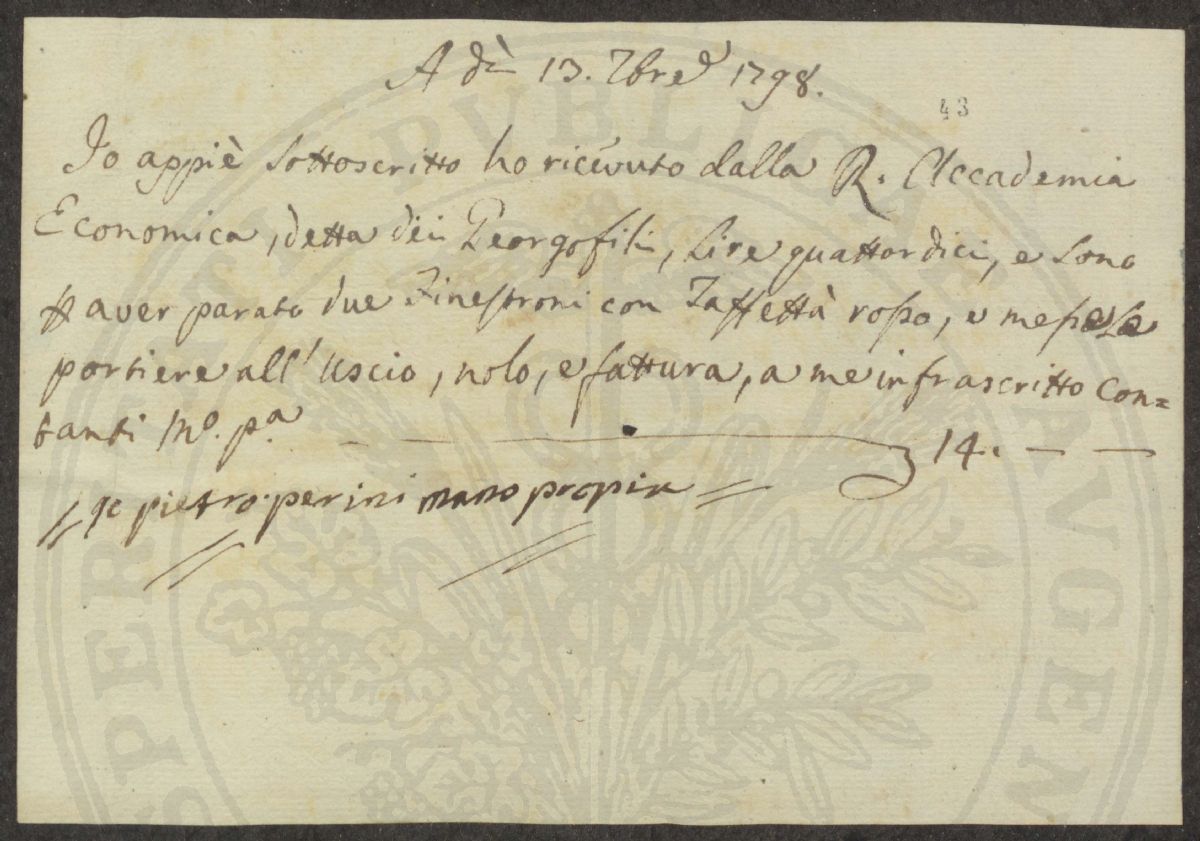 A dì 13. 7bre 1798.
43
Io appiè sottoscritto ho ricevuto dalla R. Accademia
Economica, detta dei Georgofili, Lire quattordici, e sono
p aver parato due Finestroni con Taffettà rosso, e messe le
portiere all' uscio, nolo, e fattura, a me infrascritto con=
tanti Mo. pa ———— 14. — —
Io pietro perini mano propia